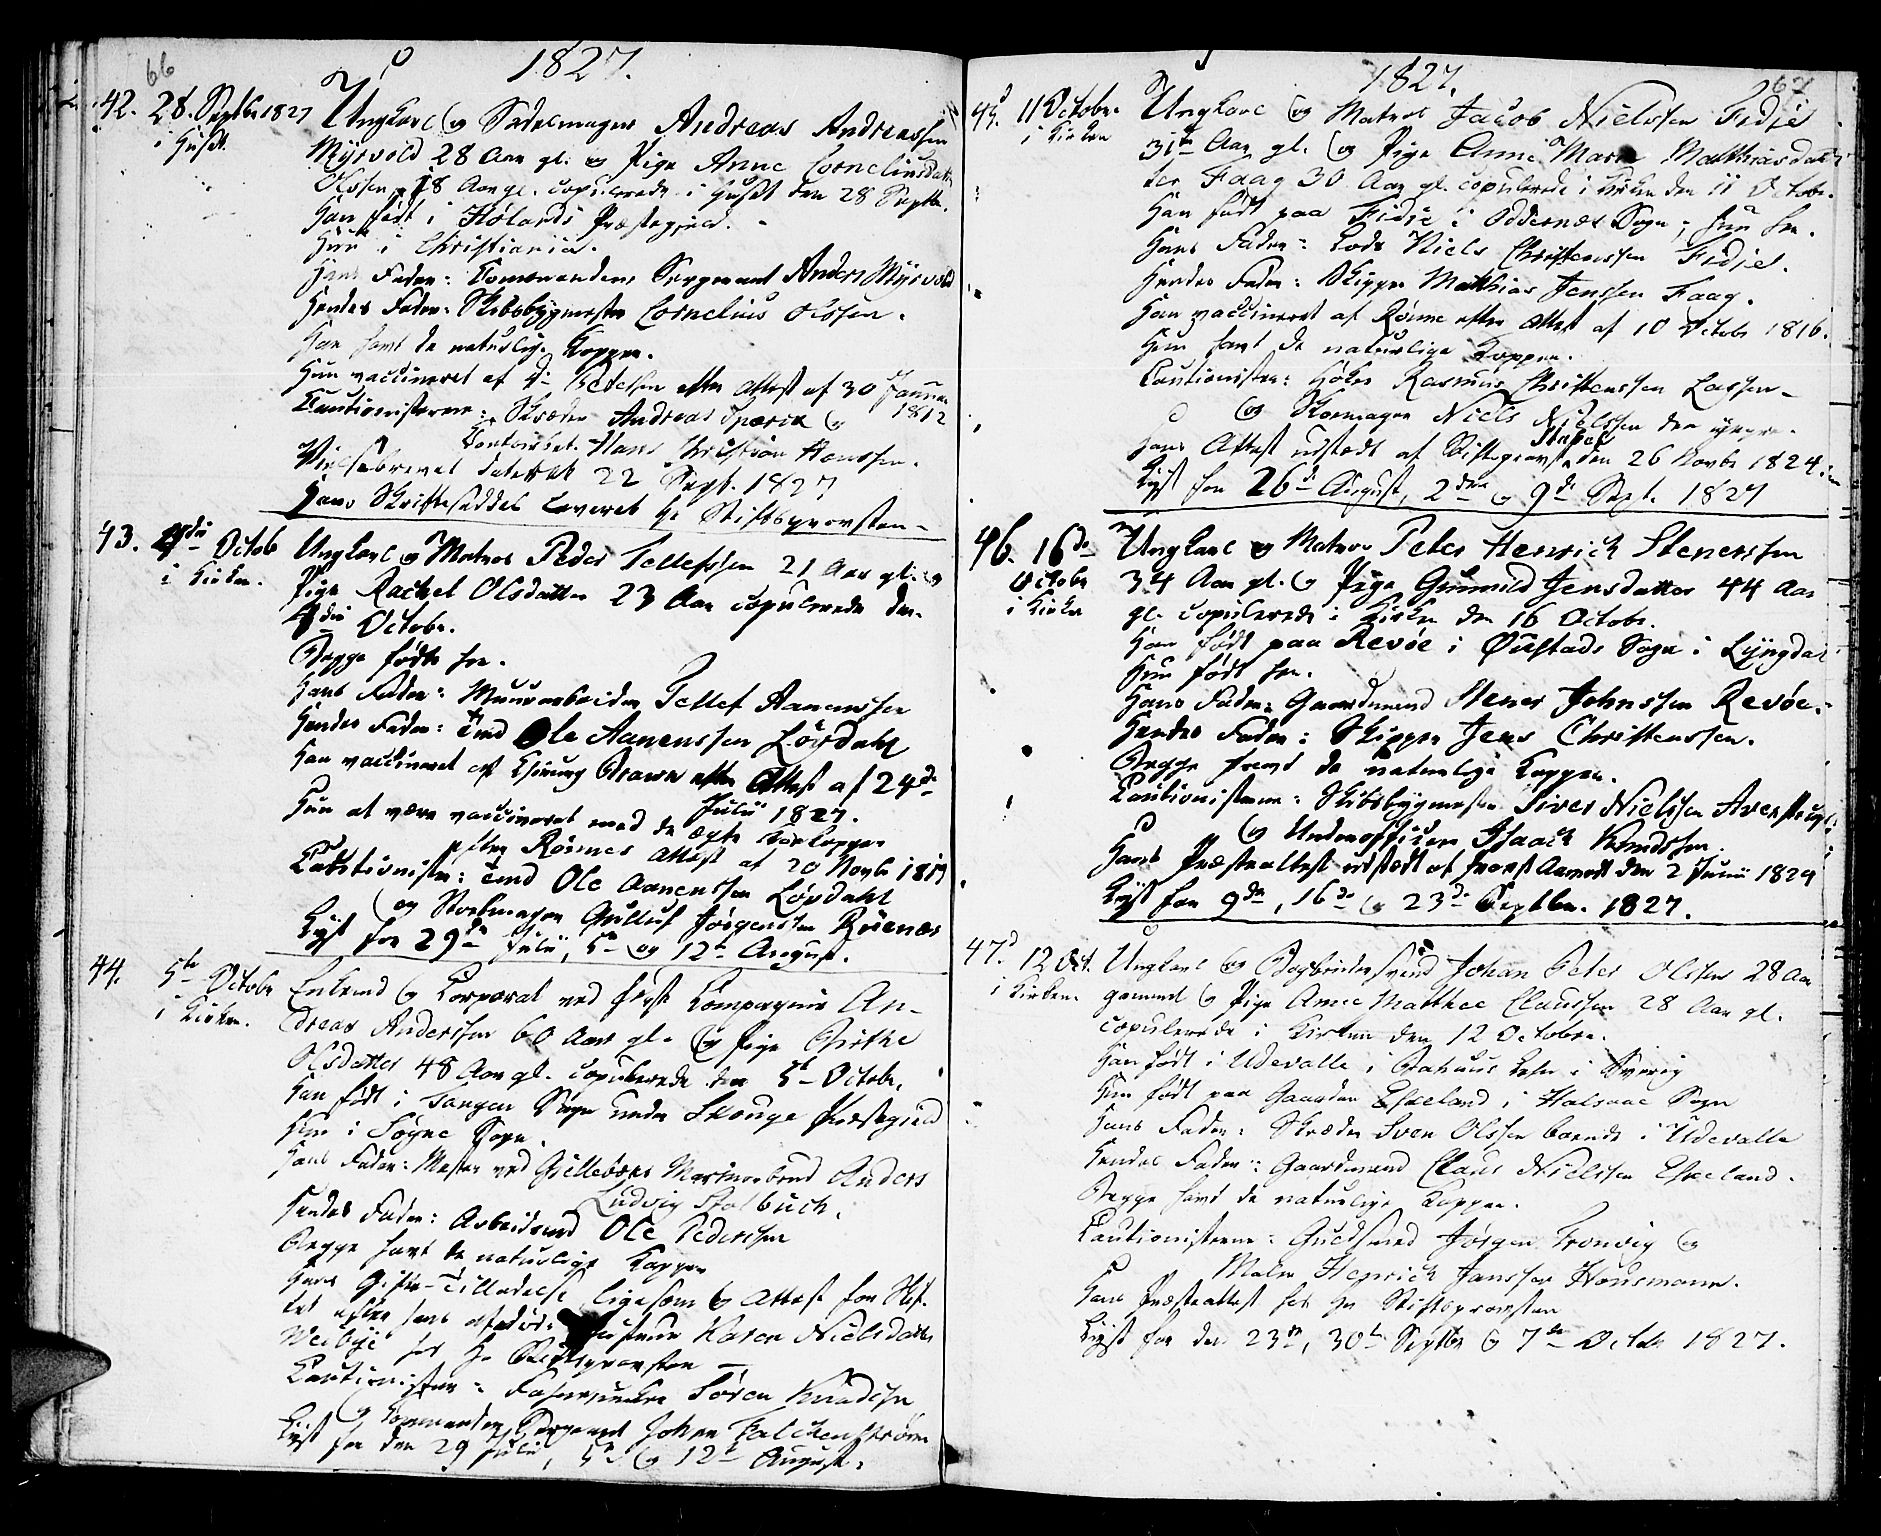 66
1827.
42. 28. Septbr 1827 Ungkarl og Sadelmager Andreas Andreassen
i Huset. Myrvold 28 Aar gl. og Pige Anne Corneliusdatter
Olssen 18 Aar gl. copulerede i Huset den 28 Septbr.
Han født i Hølands Præstegjeld.
Hun i Christiania.
Hans Fader: Commanderr Sergeant Anders Myrvold
Hendes Fader: Skibsbygmester Cornelius Olssen.
Han havt de naturlige Kopper.
Hun vaccineret af Petersen efter Attest af 30 Januar
1812
Cautionisterne: Skræder Andreas Sparick og
Hans Christian Hanssen.
Vielsebrevet dateret 22 Sept. 1827
Hans Skrifteseddel leveret Hr Stiftsprovsten
43. 4de Octob Ungkarl og Matros Peder Tellefssen 21 Aar gl. og
i Kirken. Pige Rachel Olsdatter 23 Aar copulerede den
4de Octobr.
Begge fødte her.
Hans Fader: Muurarbeider Tellef Aanenssen
Hendes Fader: Ole Aanenssen Løvdahl
Han vaccineret af Chirurg Brawn efter Attest af 24de
Julii 1827.
Hun at være vaccineret med de ægte Koekopper
efter Rømes Attest af 20 Novbr 1819
Cautionister: Ole Aanenssen Løvdahl
og Gulluf Jørgenssen Rüenæs
Lyst for 29de Julii, 5te og 12te August.
44. 5te Octobr Enkemd og Corporal ved første Compagnie An-
i Kirken. dreas Anderssen 60 Aar gl. og Pige Birthe
Olsdatter 48 Aar gl. copulerede den 5te Octobr.
Han født i Tangen Sogn under Skouge Præstegield
Hun i Søgne Sogn.
Hans Fader: Mester ved Gjellebæks Marmorbrud Anders
Ludvig Stolbuch.
Hendes Fader: Arbeidsmd Ole Pederssen
Begge havt de naturlige Kopper
Hans Gifte-Tilladelse ligesom og Attest for Skif-
tet efter hans afdøde Hustrue Karen Nielsdatter
Weibye hos Hr Stiftsprovsten
Cautionister: Søren Knudssen
og Commandeer Sergeant Johan Falchenstrøm
Lyst for den 29 Julii, 5te og 12te August.
67
1827.
45. 11 Octobr. Ungkarl og Matros Jacob Nielssen Fidje
i Kirken 31te Aar gl. og Pige Anne Marie Matthiasdat-
ter Faag 30 Aar gl. copulerede i Kirken den 11 Octobr.
Han født paa Fidje i Oddernæs Sogn; hun her.
Hans Fader: Lods Niels Christenssen Fidje.
Hendes Fader: Skipper Matthias Jenssen Faag.
Han vaccineret af Røime efter Attest af 10 Octobr 1816.
Hun havt de naturlige Kopper.
Cautionister: Høker Rasmus Christenssen Lassen
og Skomager Niels Nielssen den yngre.
Hans Attest udstedt af Stiftsprovst Stabel den 26 Novbr 1824.
Lyst for 26de August, 2den og 9de Sept. 1827
46. 16de Ungkarl og Matros Peter Henrich Stenerssen
Octobr 34 Aar gl. og Pige Gunnild Jensdatter 44 Aar
i Kirken gl. copulerede i Kirken den 16 Octobr.
Han født paa Revøe i Øustads Sogn i Lyngdal
Hun født her.
Hans Fader: Gaardmand Stener Johnssen Revøe.
Hendes Fader: Skipper Jens Christenssen.
Begge havt de naturlige Kopper.
Cautionisterne: Skibsbygmester Siver Nielssen
og Underofficeer Isaach Knudssen.
Hans Præsteattest udstædt af den 2 Junii 1824
Lyst for 9de, 16de og 23de Septbr. 1827.
47. 12 Oct. Ungkarl og Bogbindersvend Johan Peter Olssen 28 Aar
i Kirken. gammel og Pige Anne Matthee Claussen 28 Aar gl.
copulerede i Kirken den 12 Octobr.
Han født i Udevalle i Bahuus Lehn i Sverig
Hun født paa Gaarden Eskeland i Halsaae Sogn
Hans Fader: Skræder Sven Olssen boende i Udevalle
Hendes Fader: Gaardmand Claus Nielssen Eskeland.
Begge havt de naturlige Kopper.
Cautionisterne: Guldsmed Jørgen Tronvig og
Maler Henrich Janssen Housmann.
Hans Præsteattest hos Hr Stiftsprovsten
Lyst for den 23de, 30te Septbr og 7de Octbr 1827.